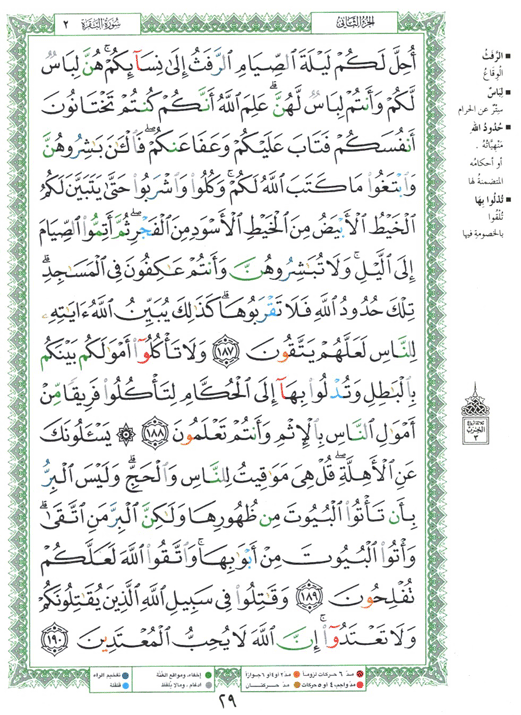 الجزء الثاني
سورة البقرة ٢
أُحِلَّ لَكُمْ لَيْلَةَ ٱلصِّيَامِ ٱلرَّفَثُ إِلَىٰ نِسَآئِكُمْ ۚ هُنَّ لِبَاسٌ
لَّكُمْ وَأَنتُمْ لِبَاسٌ لَّهُنَّ ۗ عَلِمَ ٱللَّهُ أَنَّكُمْ كُنتُمْ تَخْتَانُونَ
أَنفُسَكُمْ فَتَابَ عَلَيْكُمْ وَعَفَا عَنكُمْ ۖ فَٱلْـَٰٔنَ بَـٰشِرُوهُنَّ
وَٱبْتَغُوا۟ مَا كَتَبَ ٱللَّهُ لَكُمْ ۚ وَكُلُوا۟ وَٱشْرَبُوا۟ حَتَّىٰ يَتَبَيَّنَ لَكُمُ
ٱلْخَيْطُ ٱلْأَبْيَضُ مِنَ ٱلْخَيْطِ ٱلْأَسْوَدِ مِنَ ٱلْفَجْرِ ۖ ثُمَّ أَتِمُّوا۟ ٱلصِّيَامَ
إِلَى ٱلَّيْلِ ۚ وَلَا تُبَـٰشِرُوهُنَّ وَأَنتُمْ عَـٰكِفُونَ فِى ٱلْمَسَـٰجِدِ ۗ
تِلْكَ حُدُودُ ٱللَّهِ فَلَا تَقْرَبُوهَا ۗ كَذَٰلِكَ يُبَيِّنُ ٱللَّهُ ءَايَـٰتِهِۦ
لِلنَّاسِ لَعَلَّهُمْ يَتَّقُونَ ١٨٧ وَلَا تَأْكُلُوٓا۟ أَمْوَٰلَكُم بَيْنَكُم
بِٱلْبَـٰطِلِ وَتُدْلُوا۟ بِهَآ إِلَى ٱلْحُكَّامِ لِتَأْكُلُوا۟ فَرِيقًا مِّنْ
أَمْوَٰلِ ٱلنَّاسِ بِٱلْإِثْمِ وَأَنتُمْ تَعْلَمُونَ ١٨٨ ۞ يَسْـَٔلُونَكَ
عَنِ ٱلْأَهِلَّةِ ۖ قُلْ هِىَ مَوَٰقِيتُ لِلنَّاسِ وَٱلْحَجِّ ۗ وَلَيْسَ ٱلْبِرُّ
بِأَن تَأْتُوا۟ ٱلْبُيُوتَ مِن ظُهُورِهَا وَلَـٰكِنَّ ٱلْبِرَّ مَنِ ٱتَّقَىٰ ۗ
وَأْتُوا۟ ٱلْبُيُوتَ مِنْ أَبْوَٰبِهَا ۚ وَٱتَّقُوا۟ ٱللَّهَ لَعَلَّكُمْ
تُفْلِحُونَ ١٨٩ وَقَـٰتِلُوا۟ فِى سَبِيلِ ٱللَّهِ ٱلَّذِينَ يُقَـٰتِلُونَكُمْ
وَلَا تَعْتَدُوٓا۟ ۚ إِنَّ ٱللَّهَ لَا يُحِبُّ ٱلْمُعْتَدِينَ ١٩٠
■ الرَّفَثُ
الوِقَاعُ
■ لِبَاسٌ
سِتْرٌ عن الحرام
■ حُدُودُ الله
مَنْهِيَّاتُه
أو أحكامُه
المتضمنة لها
■ تُدْلُوا بها
تُلْقُوا
بالخصومةِ فيها
الحزب
٣
مدّ ٦ حركات لزوماً
مدّ ٢ أو ٤ أو ٦ جوازاً
إخفاء، ومواقع الغُنَّة
تفخيم الراء
مدّ واجب ٤ أو ٥ حركات
مدّ حركتان
ادغام، وما لا يُلفظ
قلقلة
٢٩